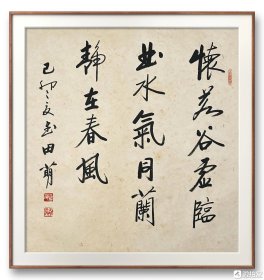 懷若谷虛臨
水氣月蘭
靜在春風
己卯之夏玉田